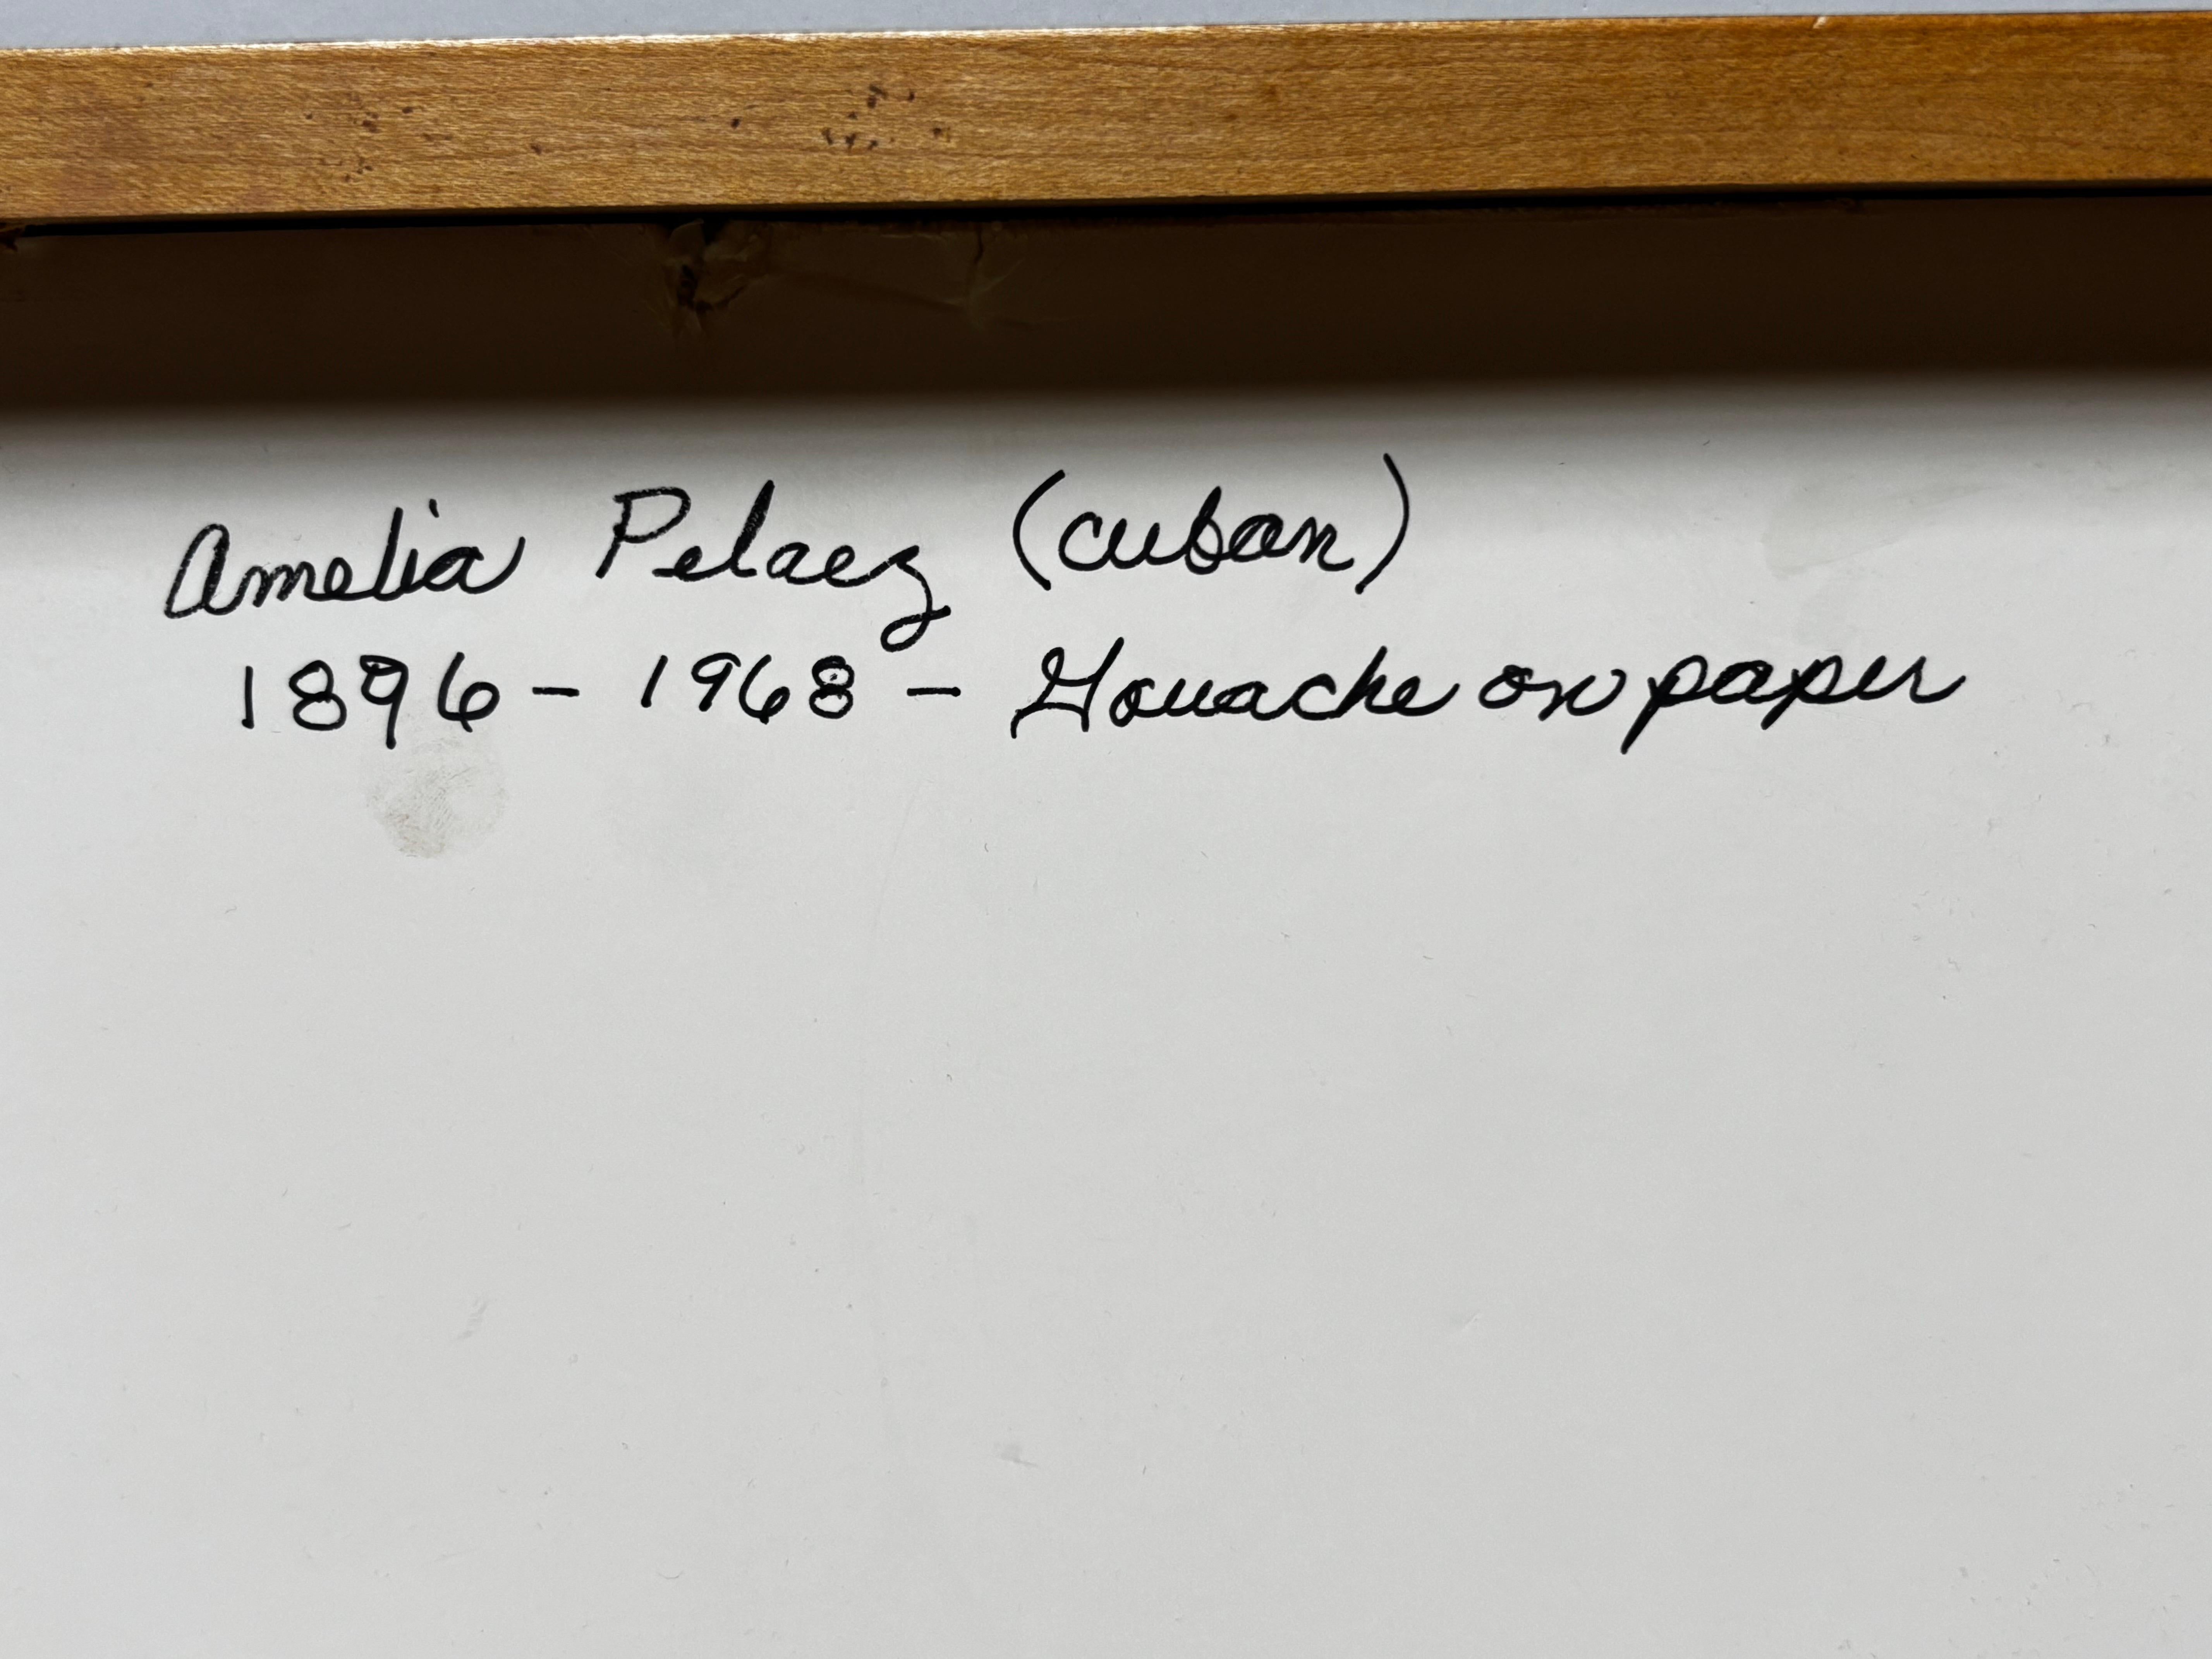 Amelia Pelaez (cuban)
1896 - 1968 - Gouache on paper